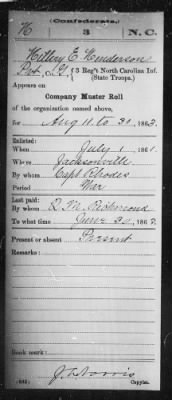 (Confederate.)
H 3 N.C.
Hillery E Henderson
Pvt, Co. G, 3 Reg't North Carolina Inf.
(State Troops.)
Appears on
Company Muster Roll
of the organization named above,
for Aug 11 to 30, 1862.
Enlisted:
When July 1, 1861
Where Jacksonville
By whom Capt Rhodes
Period War
Last paid:
By whom Q. M. Richmond
To what time June 30, 1862
Present or absent Present
Remarks:
Book mark:
J. L. Norris
(642) Copyist.